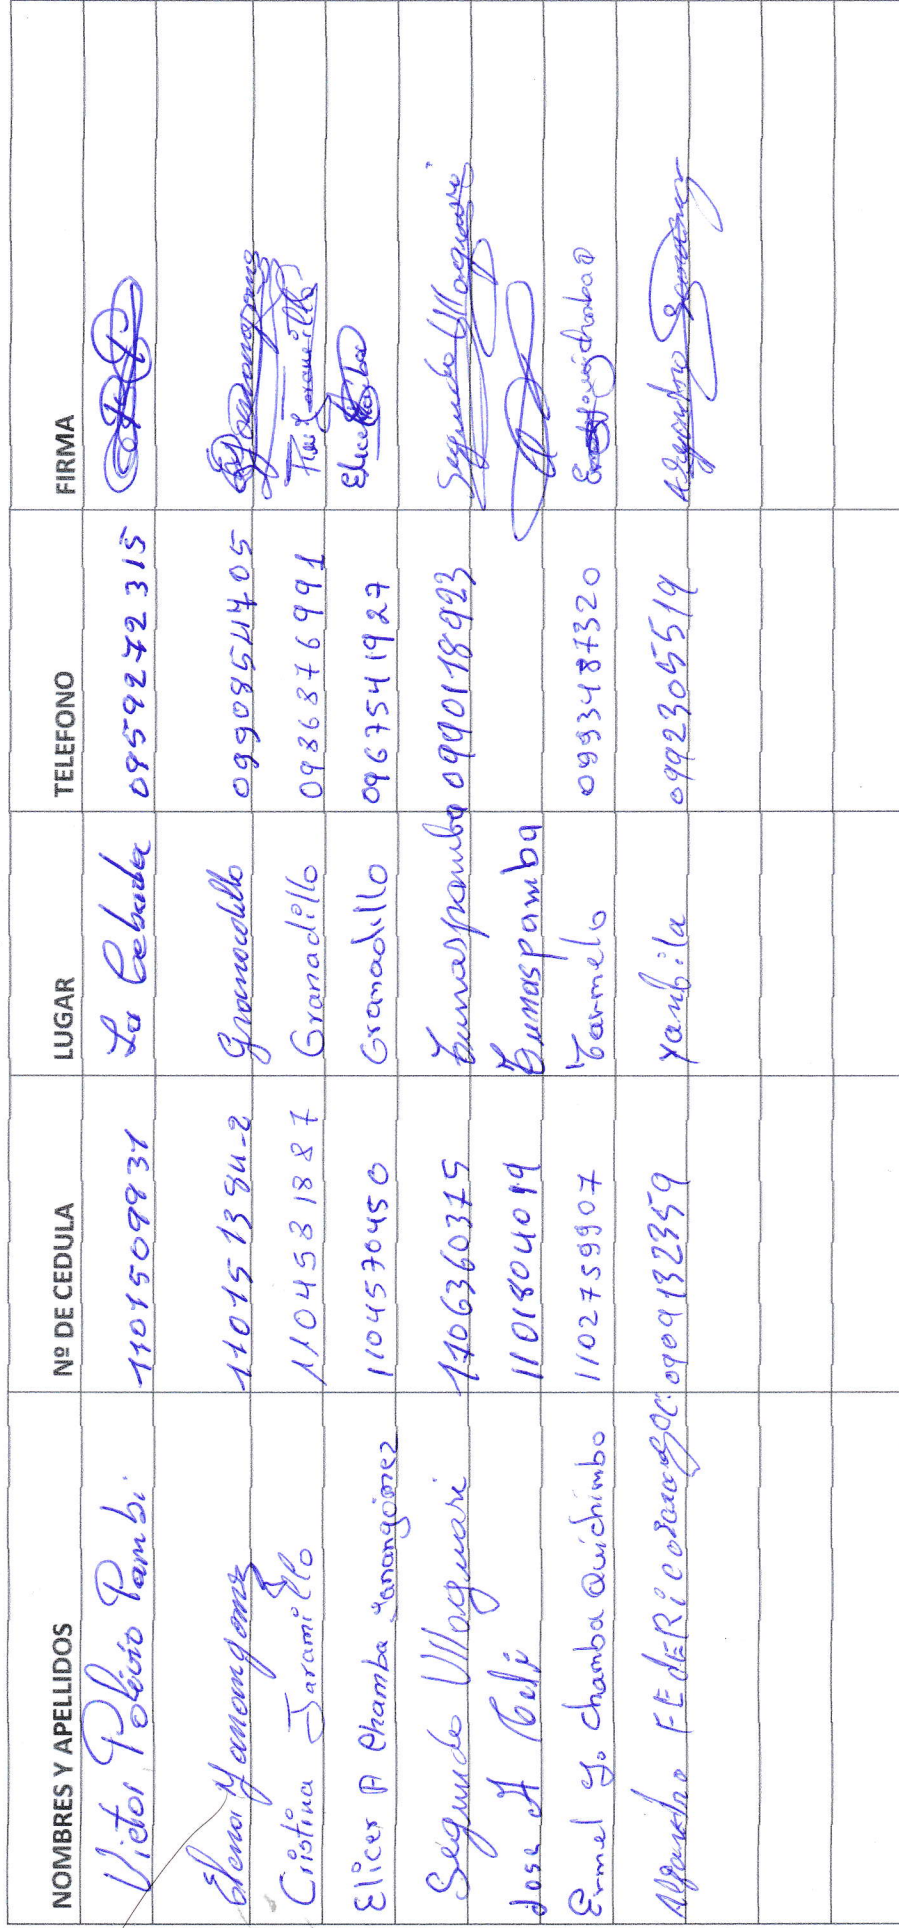 NOMBRES Y APELLIDOS Nº DE CEDULA LUGAR TELEFONO FIRMA
Victor Polivio Pambi 1101509931 La Cebada 0959272315
Elena Yanangomez 110151384-2 Granadillo 0990854705
Cristina Jaramillo 1104581887 Granadillo 0986876991
Elicer A Chamba Yanangomez 1104570450 Granadillo 0967541927
Segundo Ullaguari 1706360375 Tunaspamba 0990118923 Segundo Ullaguari
Jose A 1101804019 Tumaspamba
Ermel Y. Chamba Quichimbo 1102759907 Carmelo 0993487320
Alejandro FEdERico 0909132359 Yambila 0992305519